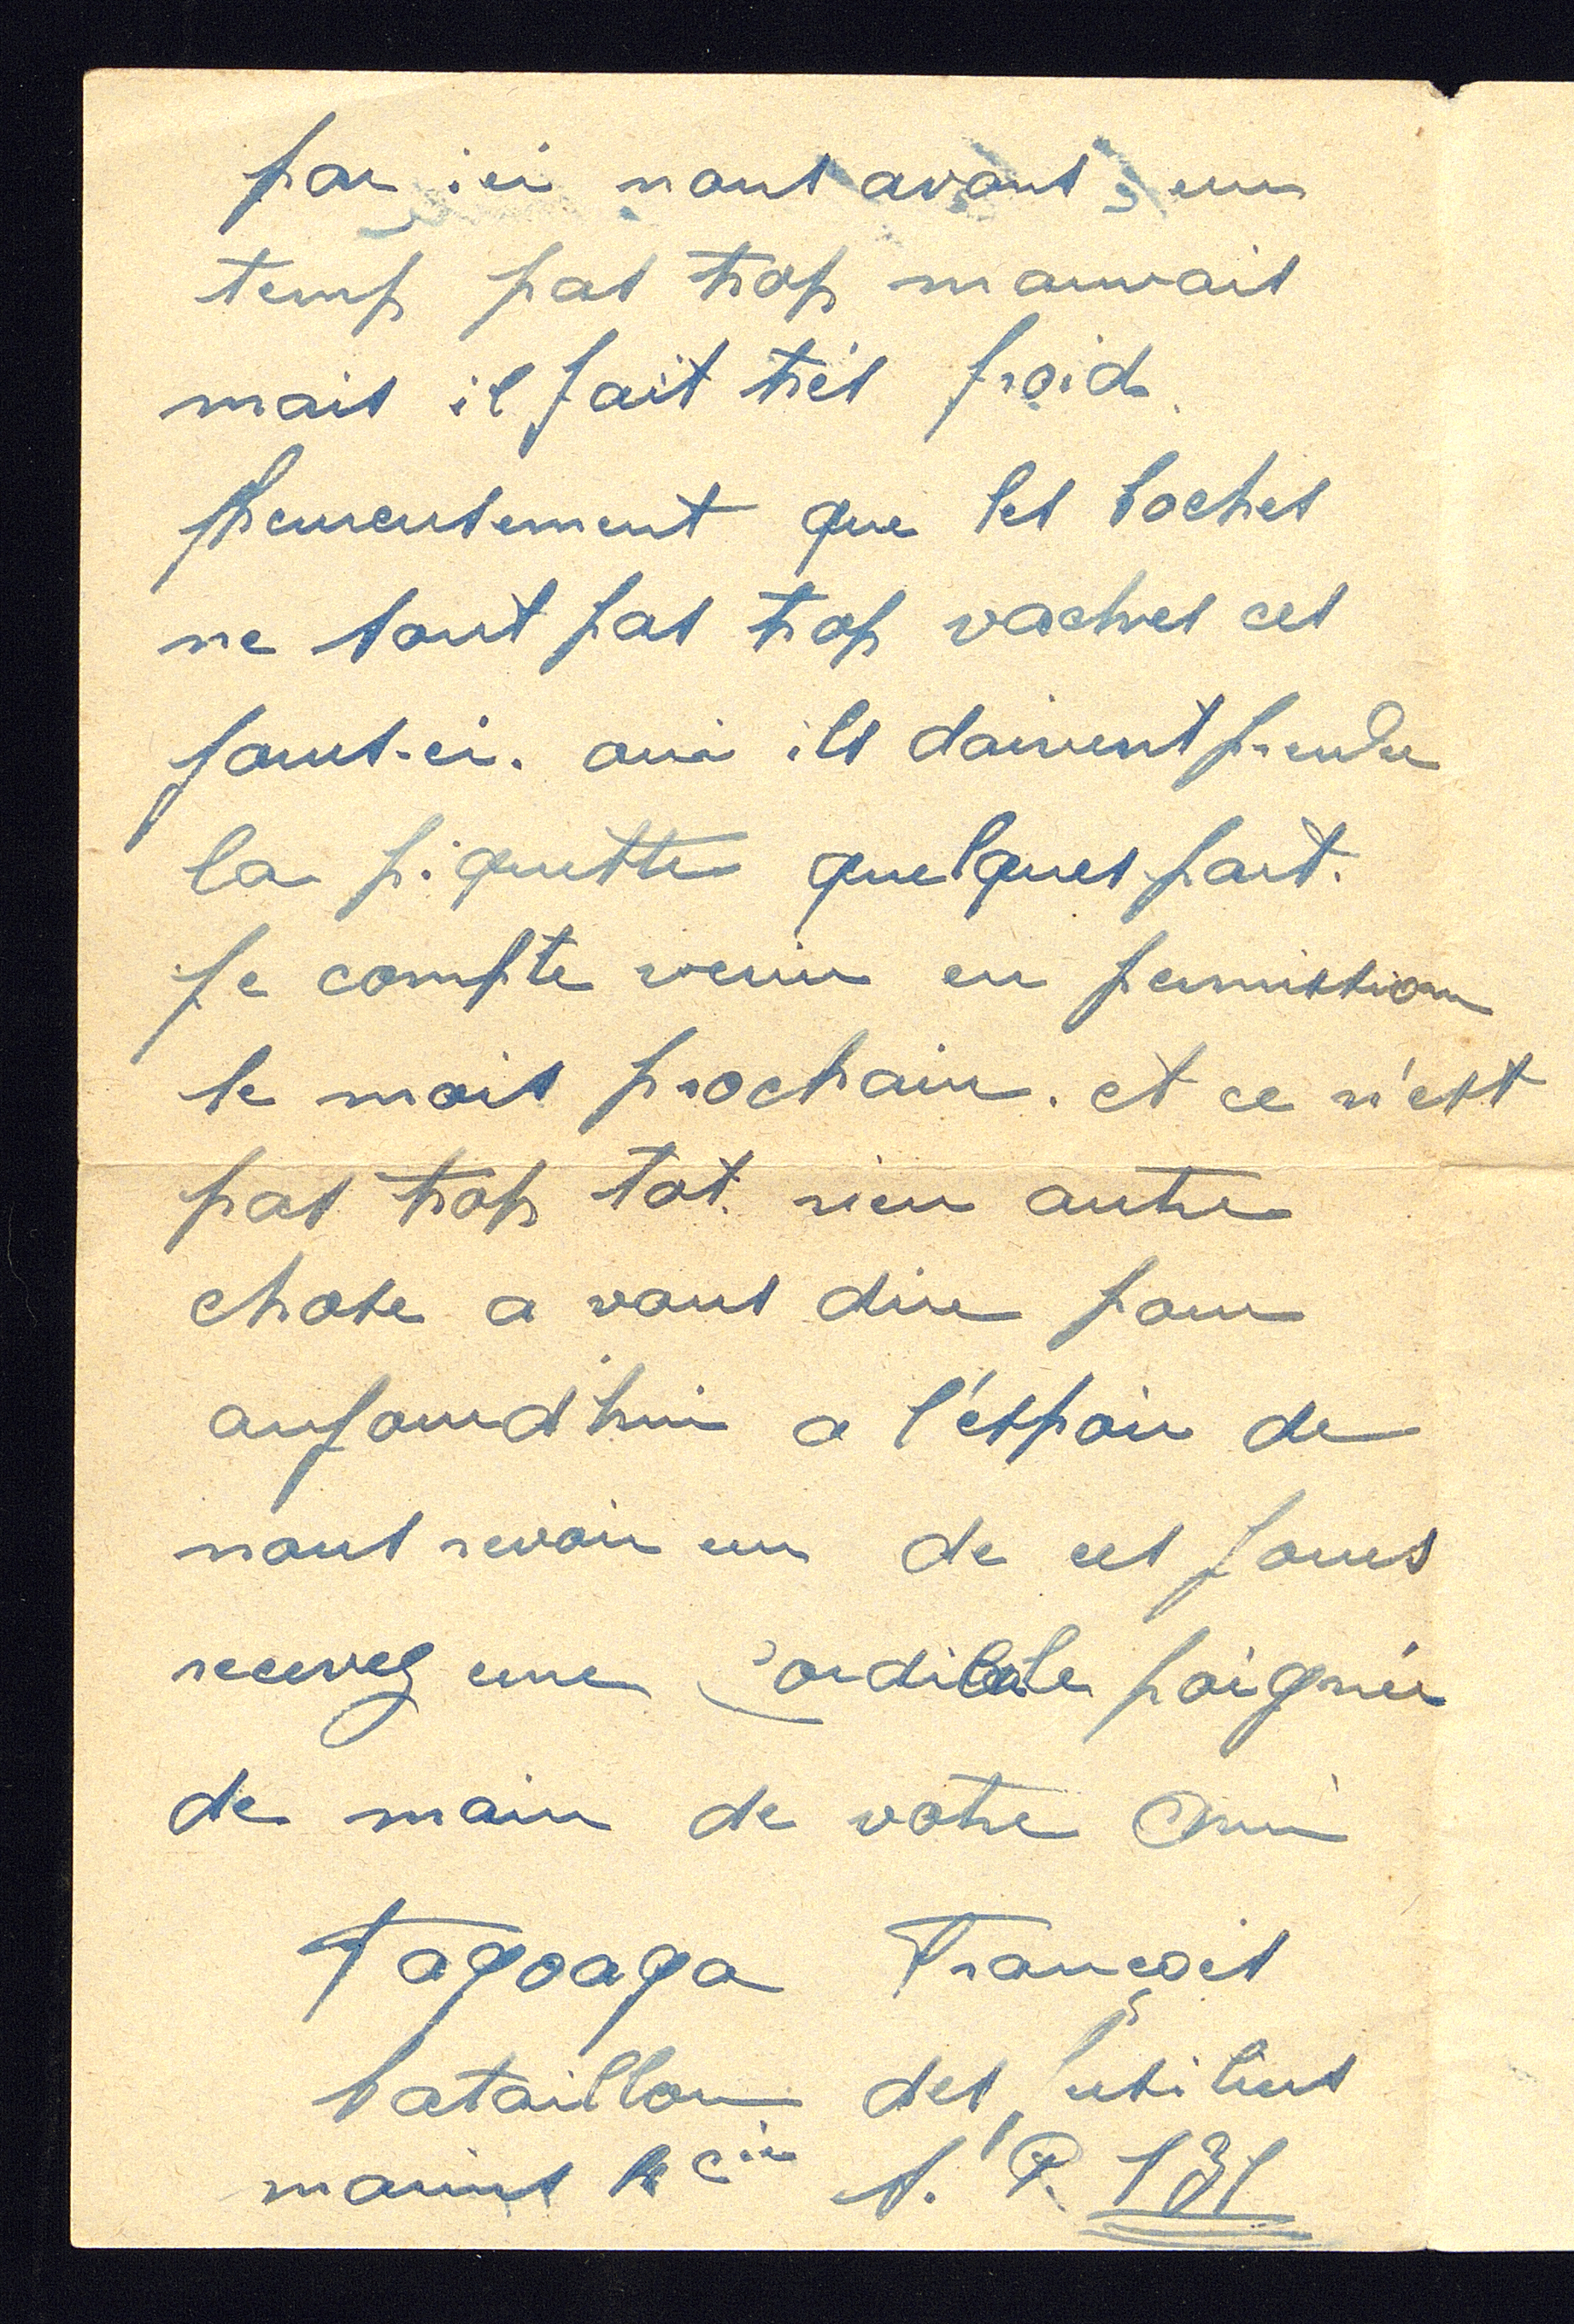 par ici nous avons un
temp pas trop mauvais
mais il fait trés froid.
heureusement que les boches
ne sont pas trop vaches ces
jours-ci. oui ils doivent prendre
la piquette quelques part.
Je compte venir en permission
le mois prochain. et ce n'est
pas trop tot. rien autre
chose a vous dire pour
aujourd'hui a l'éspoir de
nous revoir un de ces jours
recevez une cordiale poignée
de main de votre Ami
Tagoaga François
bataillon des fusiliers
marins cie S.P. 131